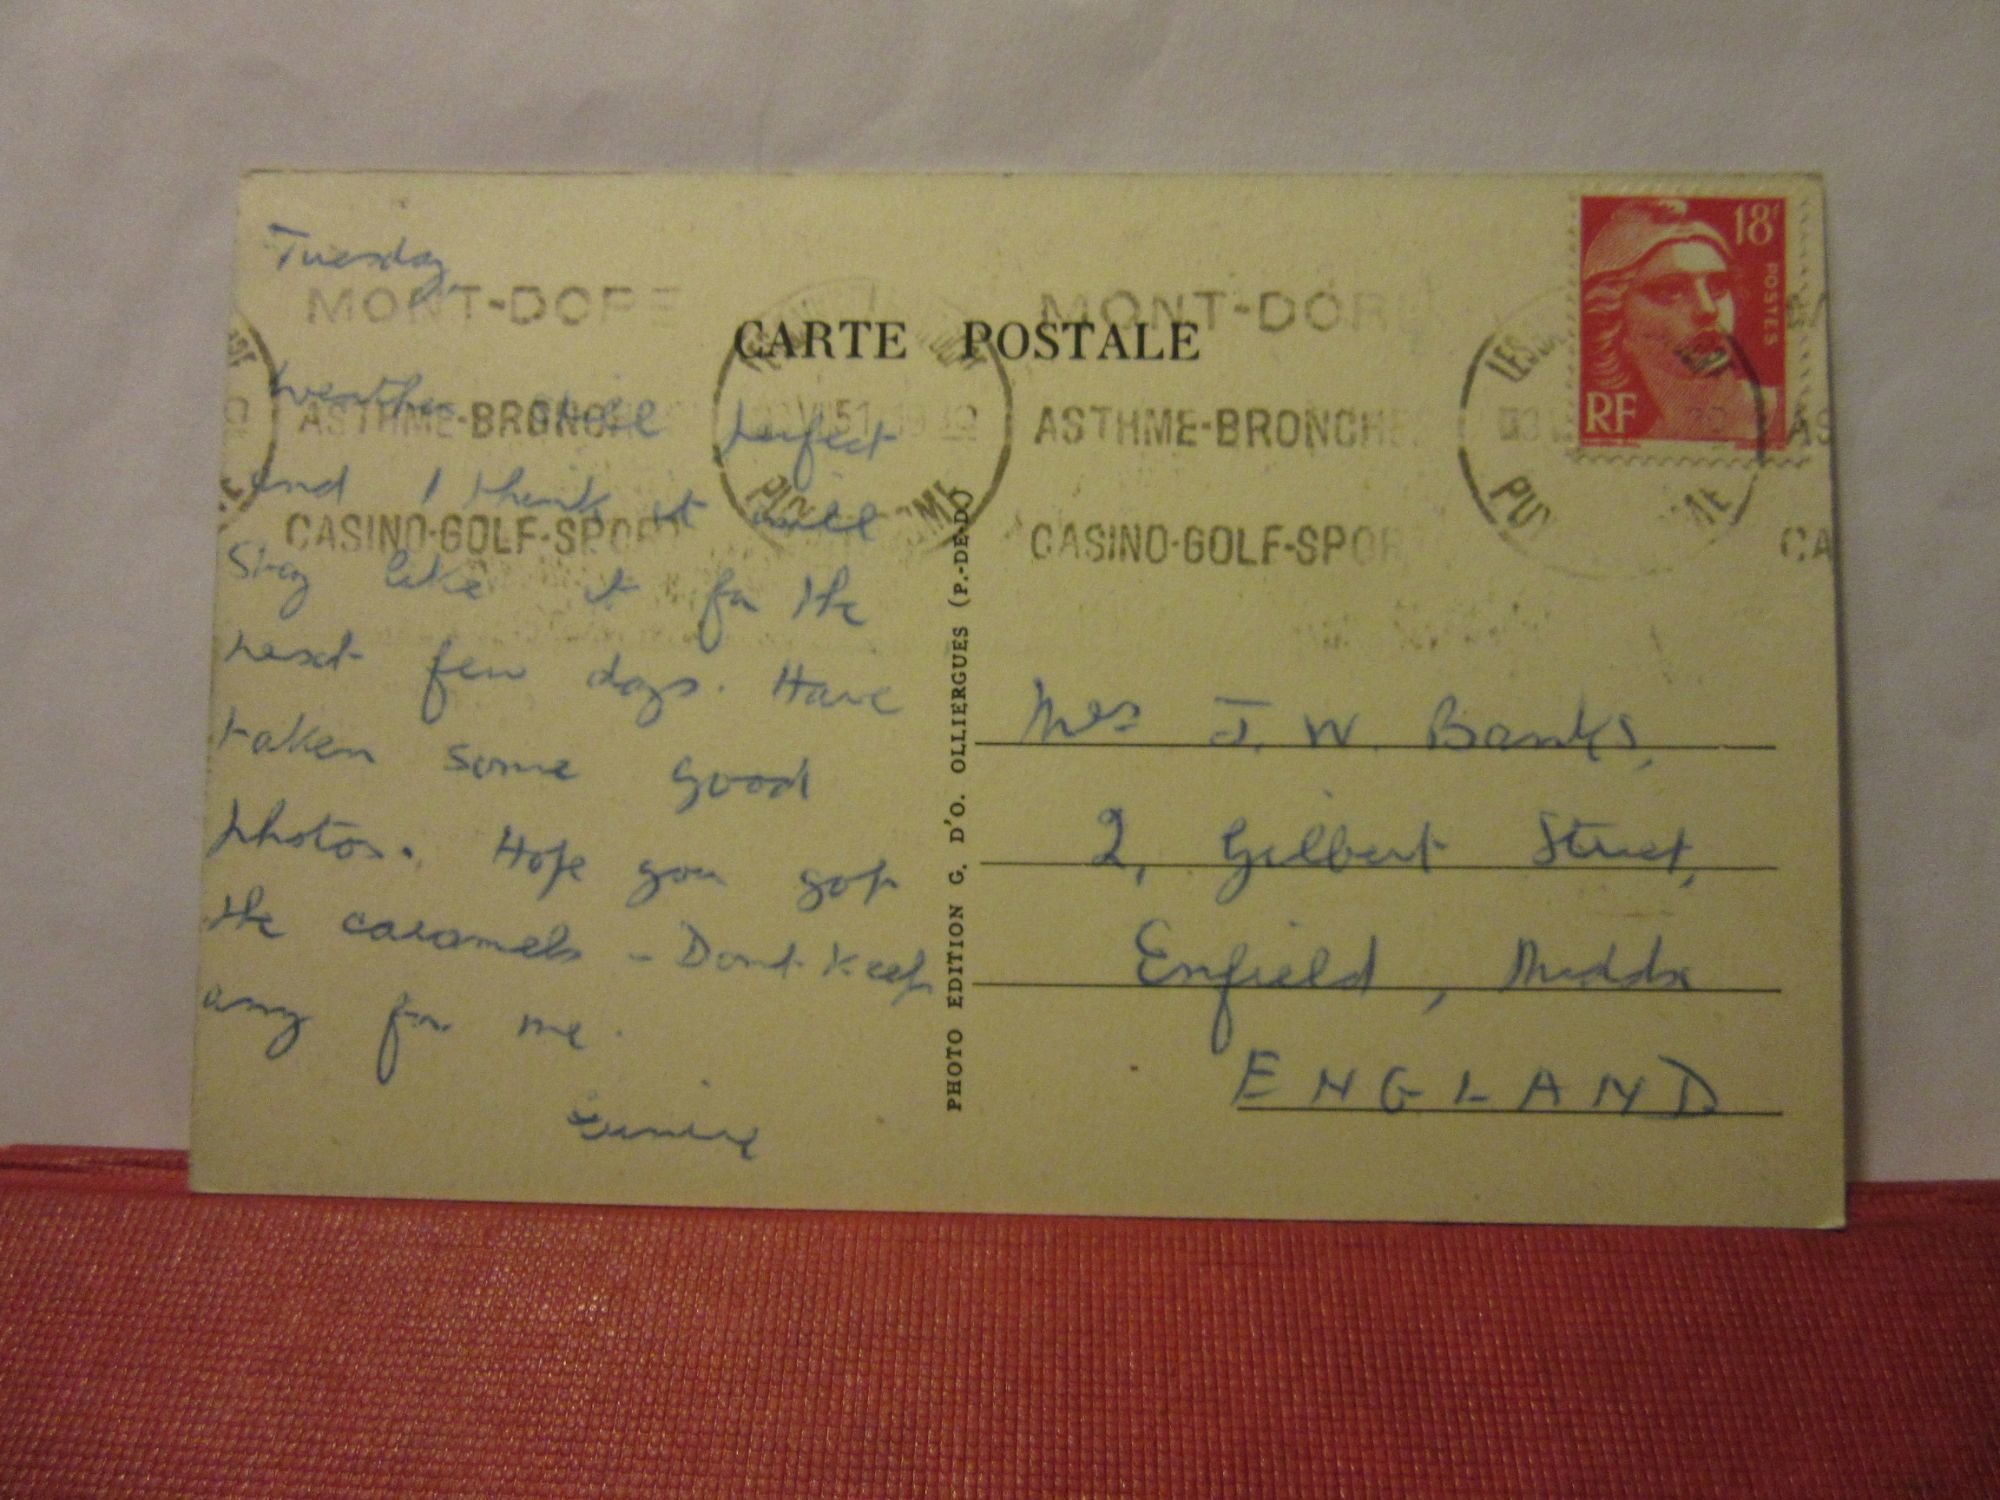 Tuesday,
MONT-DORE
CARTE POSTALE
MONT-DOR
18F
POSTES
RF
weather still perfect
ASTHME-BRONCH
VII 51
ASTHME-BRONCHE
AS
and I think it will
CASINO-GOLF-SPOR
CASINO-GOLF-SPOR
CA
stay like it for the
next few days. Have
taken some good
photos. Hope you got
the caramels - Dont keep
any for me.
PHOTO EDITION G. D'O. OLLIERGUES (P.-DE-D.)
Mrs J. W. Banks,
2, Gilbert Street,
Enfield, Middx
ENGLAND